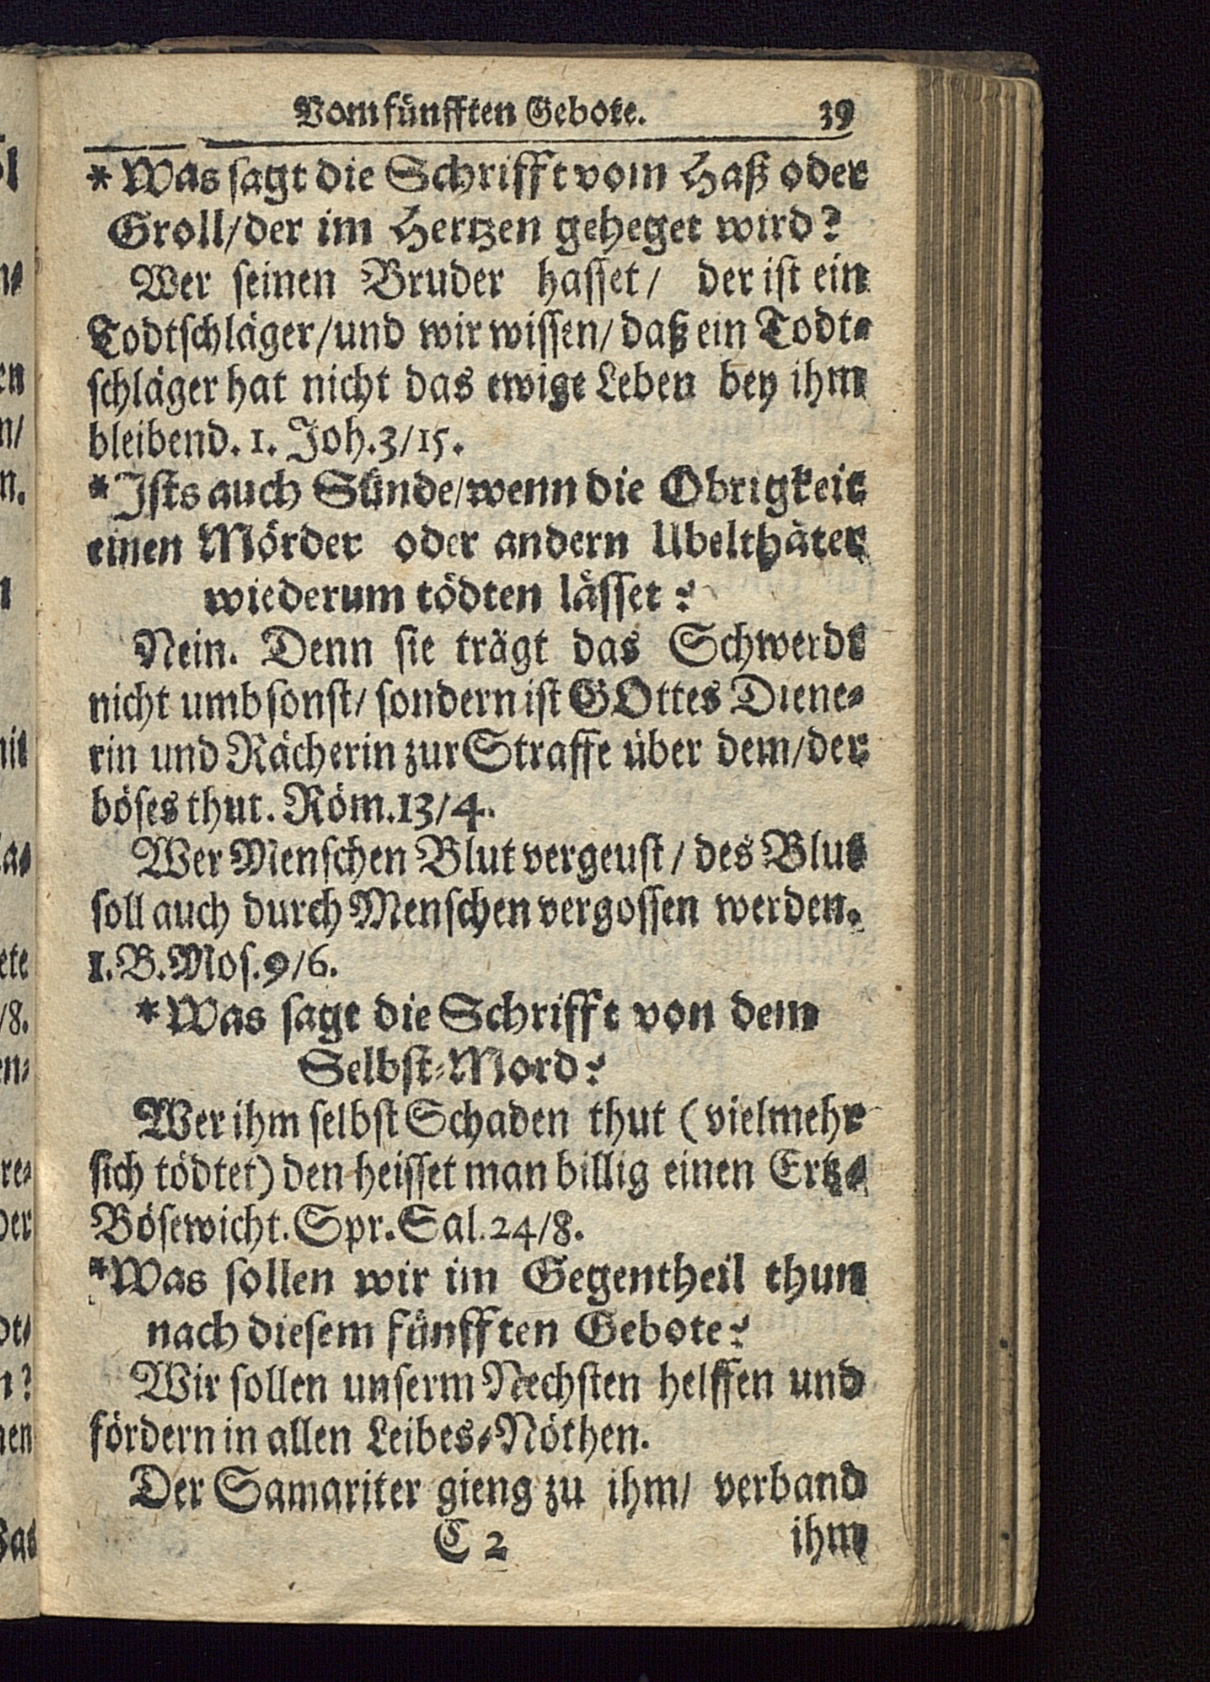 Vom fünfften Gebote. 39
* Was sagt die Schrifft vom Haß oder
Groll/der im Hertzen geheget wird?
Wer seinen Bruder hasset/ der ist ein
Todtschläger/und wir wissen/daß ein Todt-
schläger hat nicht das ewige Leben bey ihm
bleibend. 1. Joh.3/15.
*Ists auch Sünde/wenn die Obrigkeit
einen Mörder oder andern Ubelthäter
wiederum tödten lässet?
Nein. Denn sie trägt das Schwerdt
nicht umbsonst/ sondern ist GOttes Diene-
rin und Rächerin zur Straffe über dem/der
böses thut. Röm.13/4.
Wer Menschen Blut vergeust/ des Blut
soll auch durch Menschen vergossen werden.
1.B.Mos.9/6.
*Was sagt die Schrifft von dem
Selbst-Mord?
Wer ihm selbst Schaden thut (vielmehr
sich tödtet) den heisset man billig einen Ertz-
Bösewicht. Spr.Sal.24/8.
*Was sollen wir im Gegentheil thun
nach diesem fünfften Gebote?
Wir sollen unserm Nechsten helffen und
fördern in allen Leibes-Nöthen.
Der Samariter gieng zu ihm/ verband
C 2 ihm